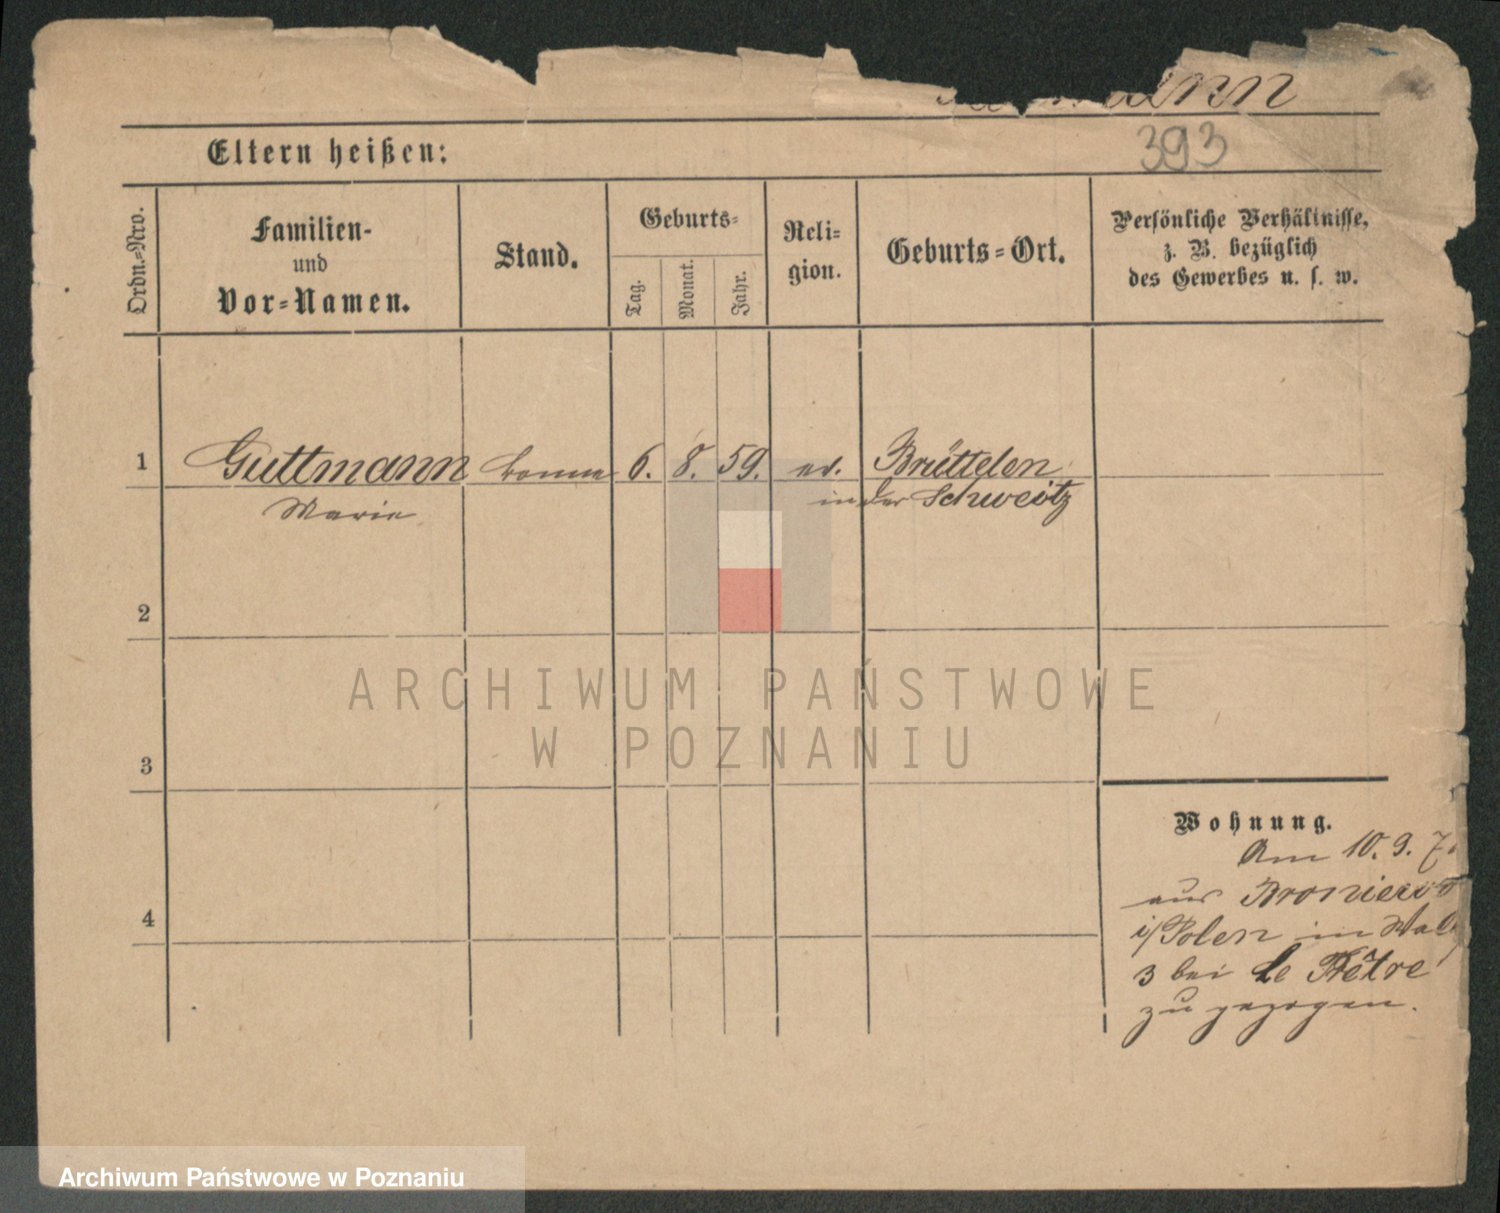 mann
393
Eltern heißen:
Ordn.-Nro.
Familien-
und
Vor-Namen.
Stand.
Geburts-
Tag.
Monat.
Jahr.
Reli-
gion.
Geburts-Ort.
Persönliche Verhältnisse,
z. B. bezüglich
des Gewerbes u. s. w.
1 Guttmann bonne 6. 8. 59. ev. Brüttelen
Marie in der Schweitz
2
3
4
Wohnung.
Am 10. 9. 7
aus
i/Polen in
3 bei Le Prêtre
zu gezogen.
ARCHIWUM PAŃSTWOWE
W POZNANIU
Archiwum Państwowe w Poznaniu